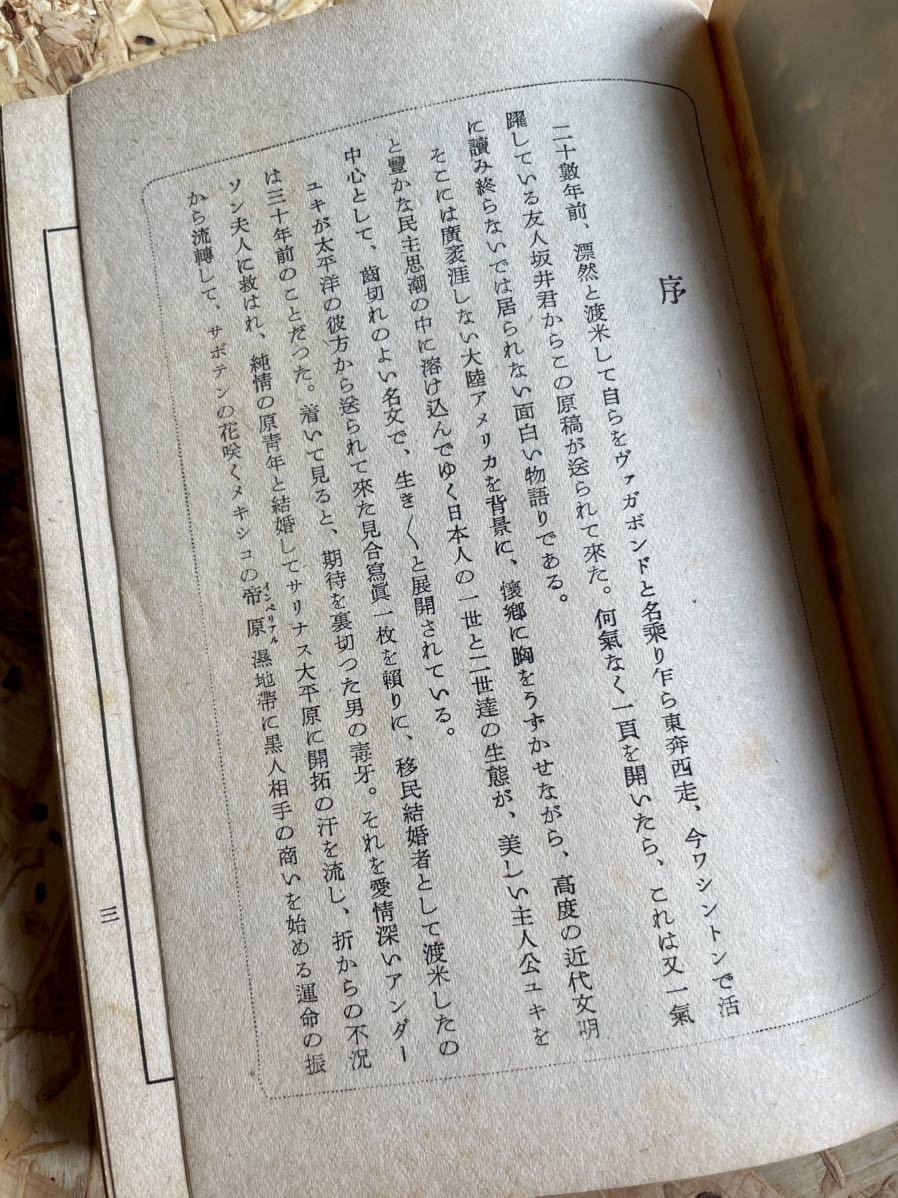 序
二十數年前、漂然と渡米して自らをヴァガボンドと名乘り乍ら東奔西走、今ワシントンで活
躍している友人坂井君からこの原稿が送られて來た。何氣なく一頁を開いたら、これは又一氣
に讀み終らないでは居られない面白い物語りである。
そこには廣袤涯しない大陸アメリカを背景に、懷鄕に胸をうずかせながら、高度の近代文明
と豐かな民主思潮の中に溶け込んでゆく日本人の一世と二世達の生態が、美しい主人公ユキを
中心として、齒切れのよい名文で、生き〱と展開されている。
ユキが太平洋の彼方から送られて來た見合寫眞一枚を賴りに、移民結婚者として渡米したの
は三十年前のことだつた。着いて見ると、期待を裏切つた男の毒牙。それを愛情深いアンダー
ソン夫人に救はれ、純情の原靑年と結婚してサリナス大平原に開拓の汗を流し、折からの不況
から流轉して、サボテンの花咲くメキシコの帝原濕地帶に黑人相手の商いを始める運命の振
インペリアル
三